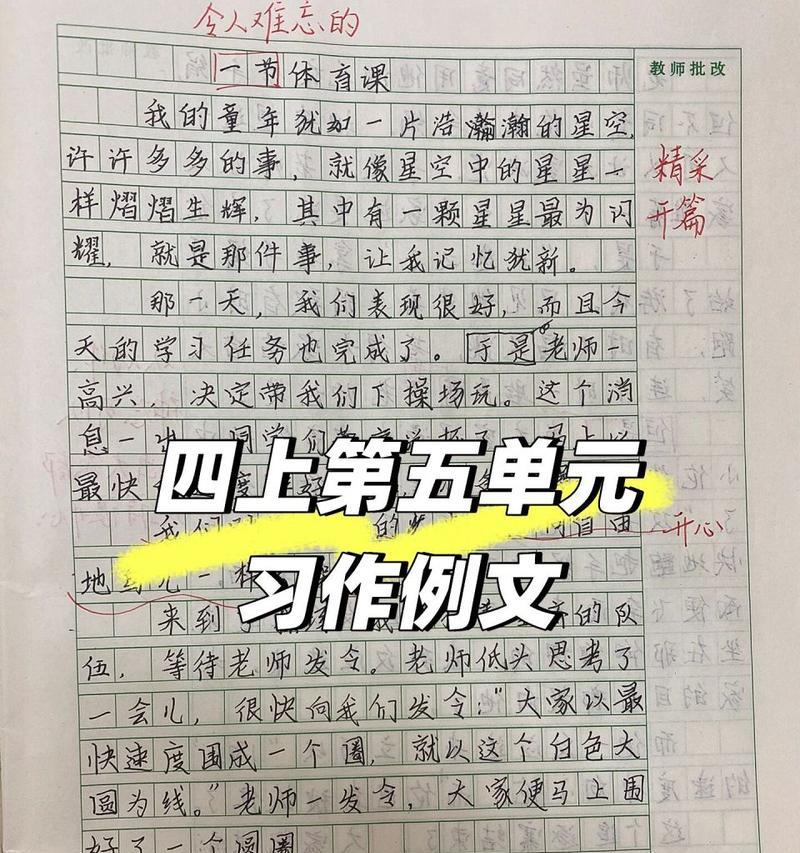 令人难忘的
一节体育课
教师批改
我的童年犹如一片浩瀚瀚的星空,
许许多多的事,就像星空中的星星一
精采
样熠熠生辉,其中有一颗星星最为闪
开篇
耀,就是那件事,让我记忆犹新。
那一天,我们表现很好,而且今
天的学习任务也完成了。于是老师一
高兴,决定带我们下操场玩。这个消
息一出,同学们
最快
四上第五单元
我们
的
自由
开心
地
一样
习作例文
来到了
的队
伍,等待老师发令。老师低头思考了
一会儿,很快向我们发令:“大家以最
快速度围成一个圈,就以这个白色大
圆为线。”老师一发令,大家便马上围
好了一个圆圈